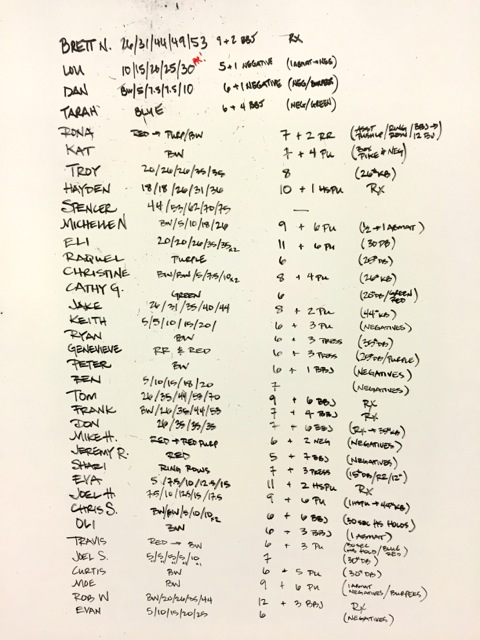 BRETT N. 26/31/44/49/53 9+2 BBJ RX
LOU 10/15/20/25/30 PR! 5+1 NEGATIVE (1 ABMAT→NEG)
DAN BW/5/7.5/7.5/10 6+1 NEGATIVE (NEG/BURPEES)
TARAH BLUE 6+4 BBJ (NEG/GREEN)
RONA RED → PURP/BW 7+2 RR (ASST PUSHUP/RING ROW/BBJ→12 BW)
KAT BW 7+4 PU (BOX PIKE & NEG)
TROY 20/26/26/35/35 8 (26#KB)
HAYDEN 18/18/26/31/36 10+1 HSPU RX
SPENCER 44/53/62/70/75 —
MICHELLE N BW/5/10/18/26 9+6 PU (1/2→1 ABMAT)
ELI 20/20/26/35/35x2 11+6 PU (30 DB)
RAQUEL PURPLE 6 (25#DB)
CHRISTINE BW/BW/5/7.5/10x2 8+4 PU (26#KB)
CATHY G. GREEN 6 (20#DB/GREEN RED)
JAKE 26/31/35/40/44 8+2 PU (44#KB)
KEITH 5/5/10/15/20/ 6+3 PU (NEGATIVES)
RYAN BW 6+3 PRESS (35#DB)
GENEVIEVE RR & RED 6+3 PRESS (25#DB/PURPLE)
PETER BW 6+1 BBJ (NEGATIVES)
BEN 5/10/15/18/20 7 (NEGATIVES)
TOM 26/35/44/53/70 9+6 BBJ RX
FRANK BW/26/35/44/53 7+4 BBJ RX
DON 26/35/35/35 7+6 BBJ (RX→35#KB)
MIKE H. RED→RED PURP 6+2 NEG (NEGATIVES)
JEREMY R. RED 5+7 BBJ (NEGATIVES)
SHARI RING ROWS 7+3 PRESS (15#DB/RR/12")
EVA 5/7.5/10/12.5/15 11+2 HSPU RX
JOEL H. 7.5/10/12.5/15/17.5 9+6 PU
CHRIS S. BW/BW/5/10/10x2 6+6 BBJ (30 SEC HS HOLDS)
OLI BW 6+3 BBJ (1 ABMAT)
TRAVIS RED → BW 6+3 PU (30 SEC HS HOLD/BLUE RED)
JOEL S. 5/5/5/5/10 7 (30#DB)
CURTIS BW 6+5 PU (30#DB)
MOE BW 9+6 PU (1 ABMAT NEGATIVES/BURPEES)
ROB W BW/20/26/35/44 12+3 BBJ RX
EVAN 5/10/15/20/25 6 (NEGATIVES)